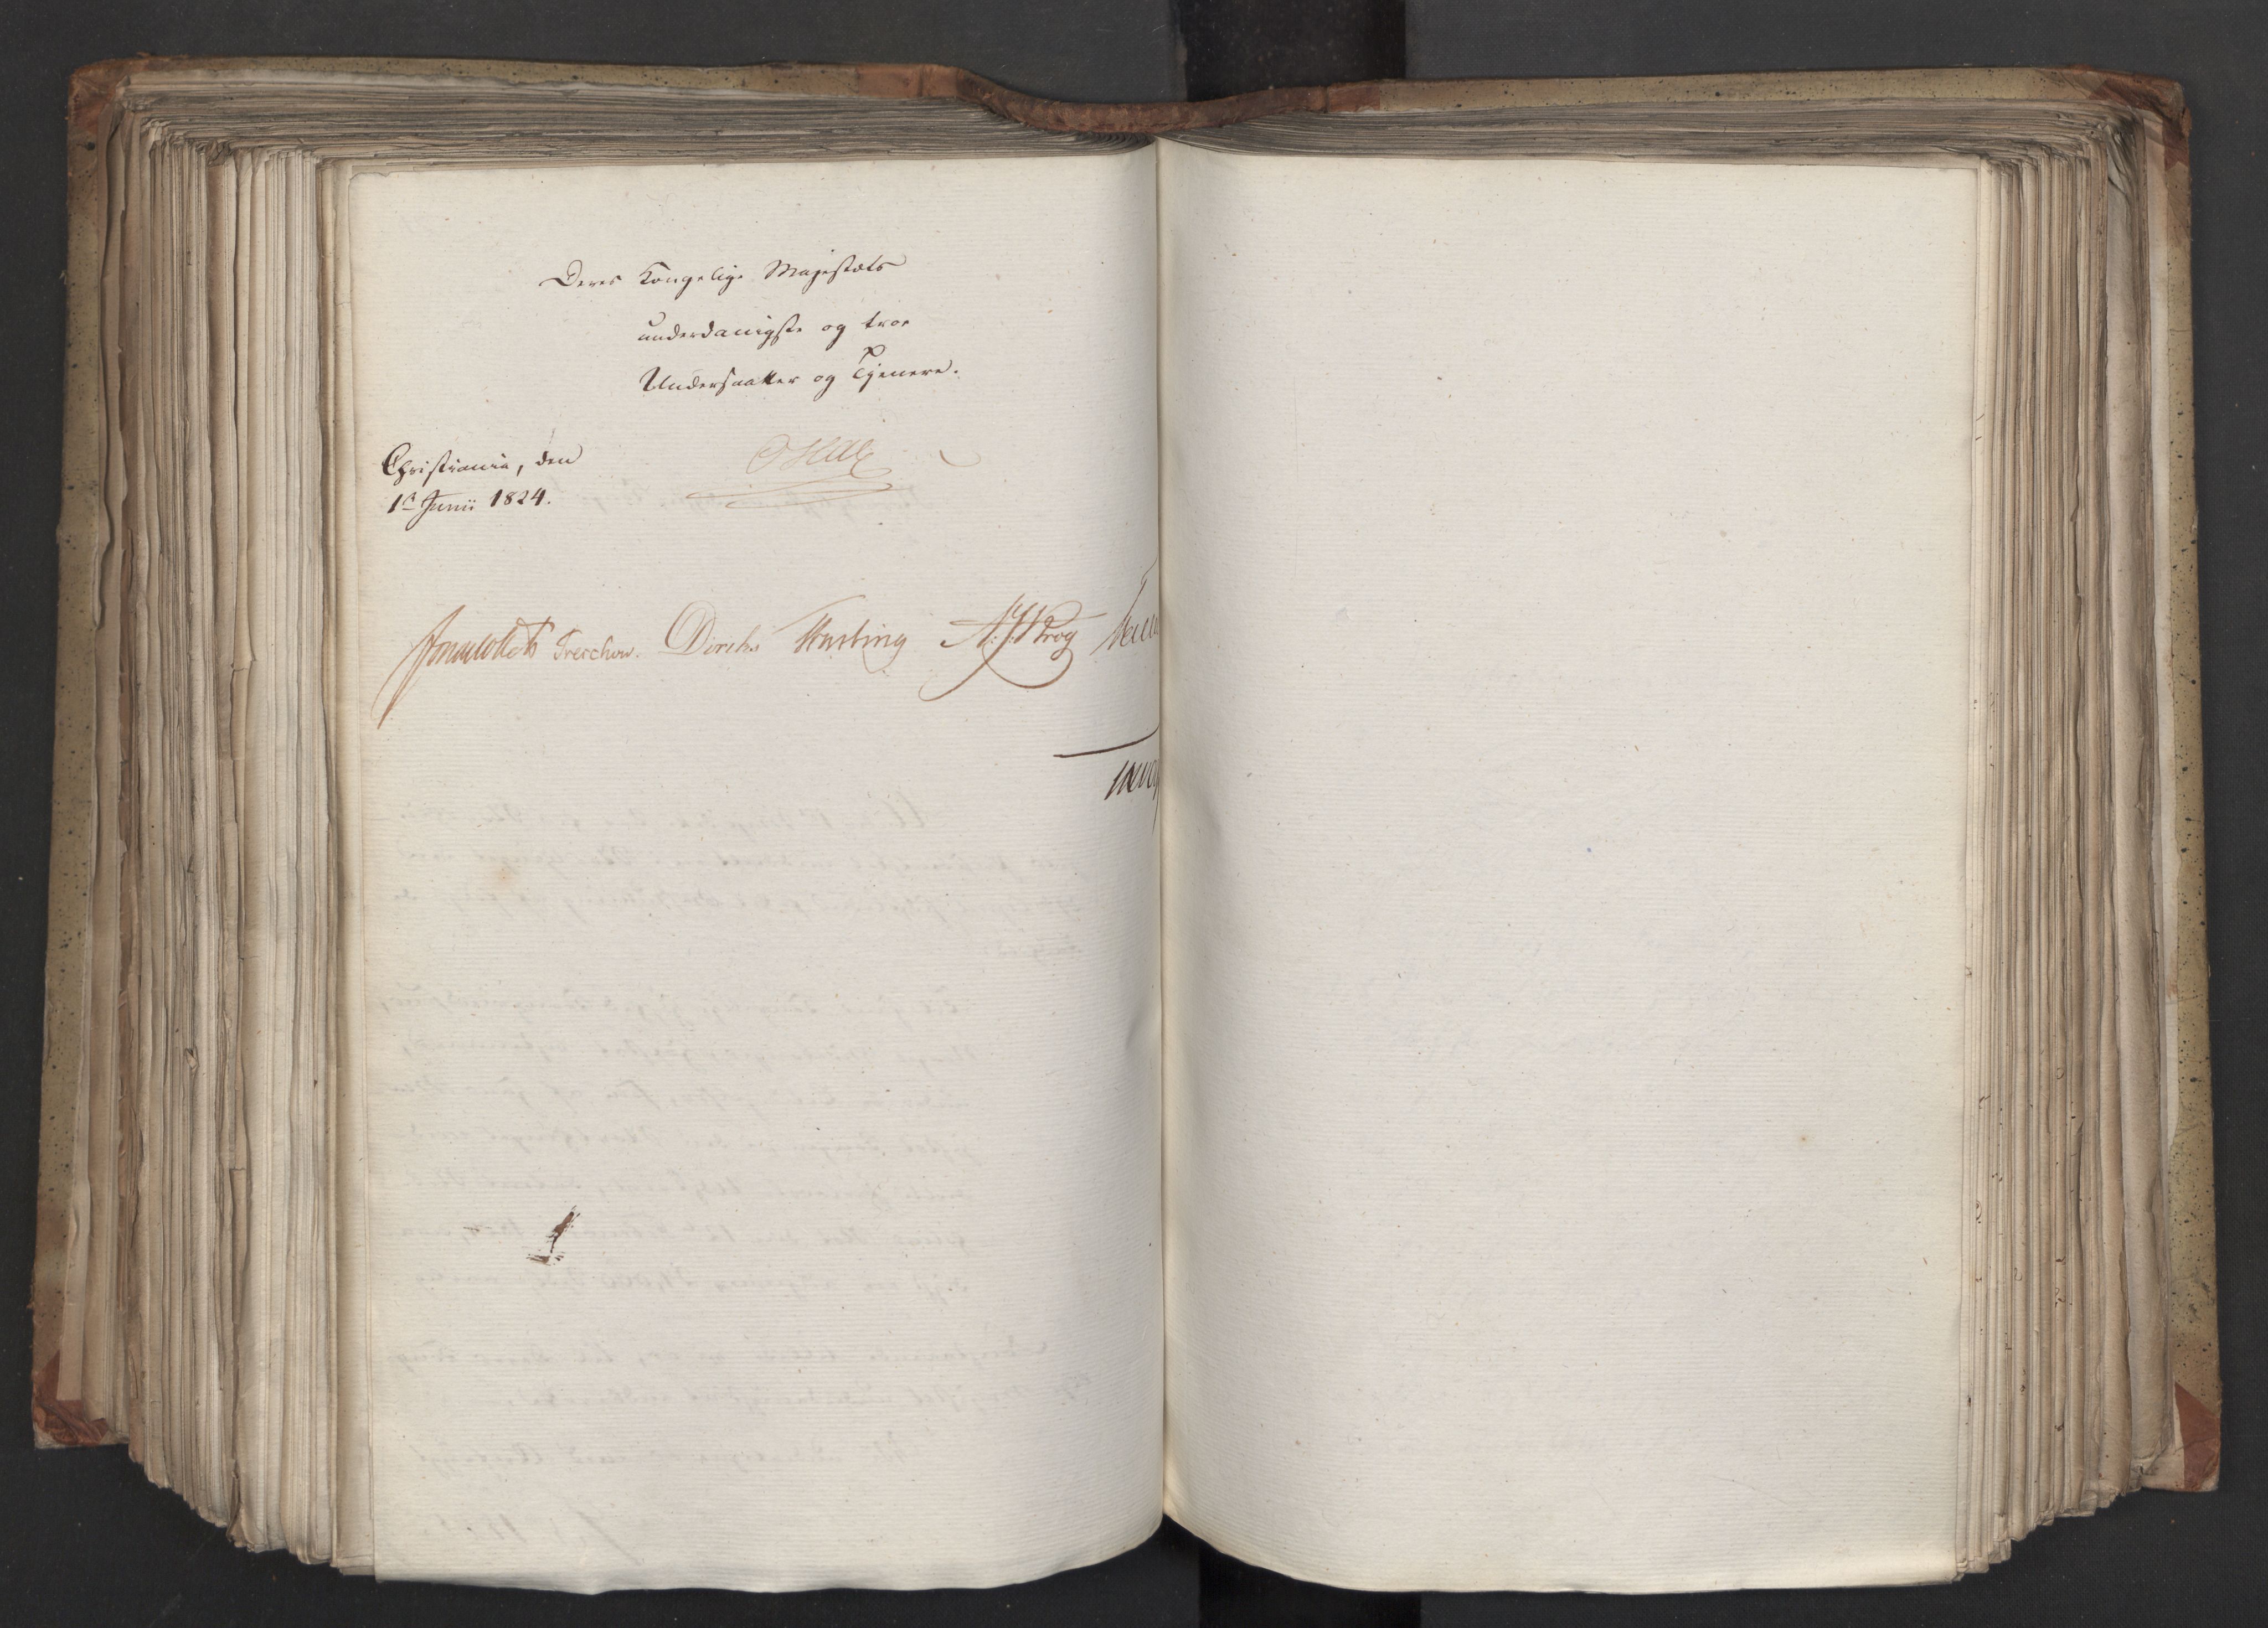 Deres Kongelige Majestæts
underdanigste og troe
Undersaatter og Tjenere.
Christiania, den
1ste Junii 1824.
Oscar
Jonas Collett Treschow. Diriks Fasting A: J: Krog